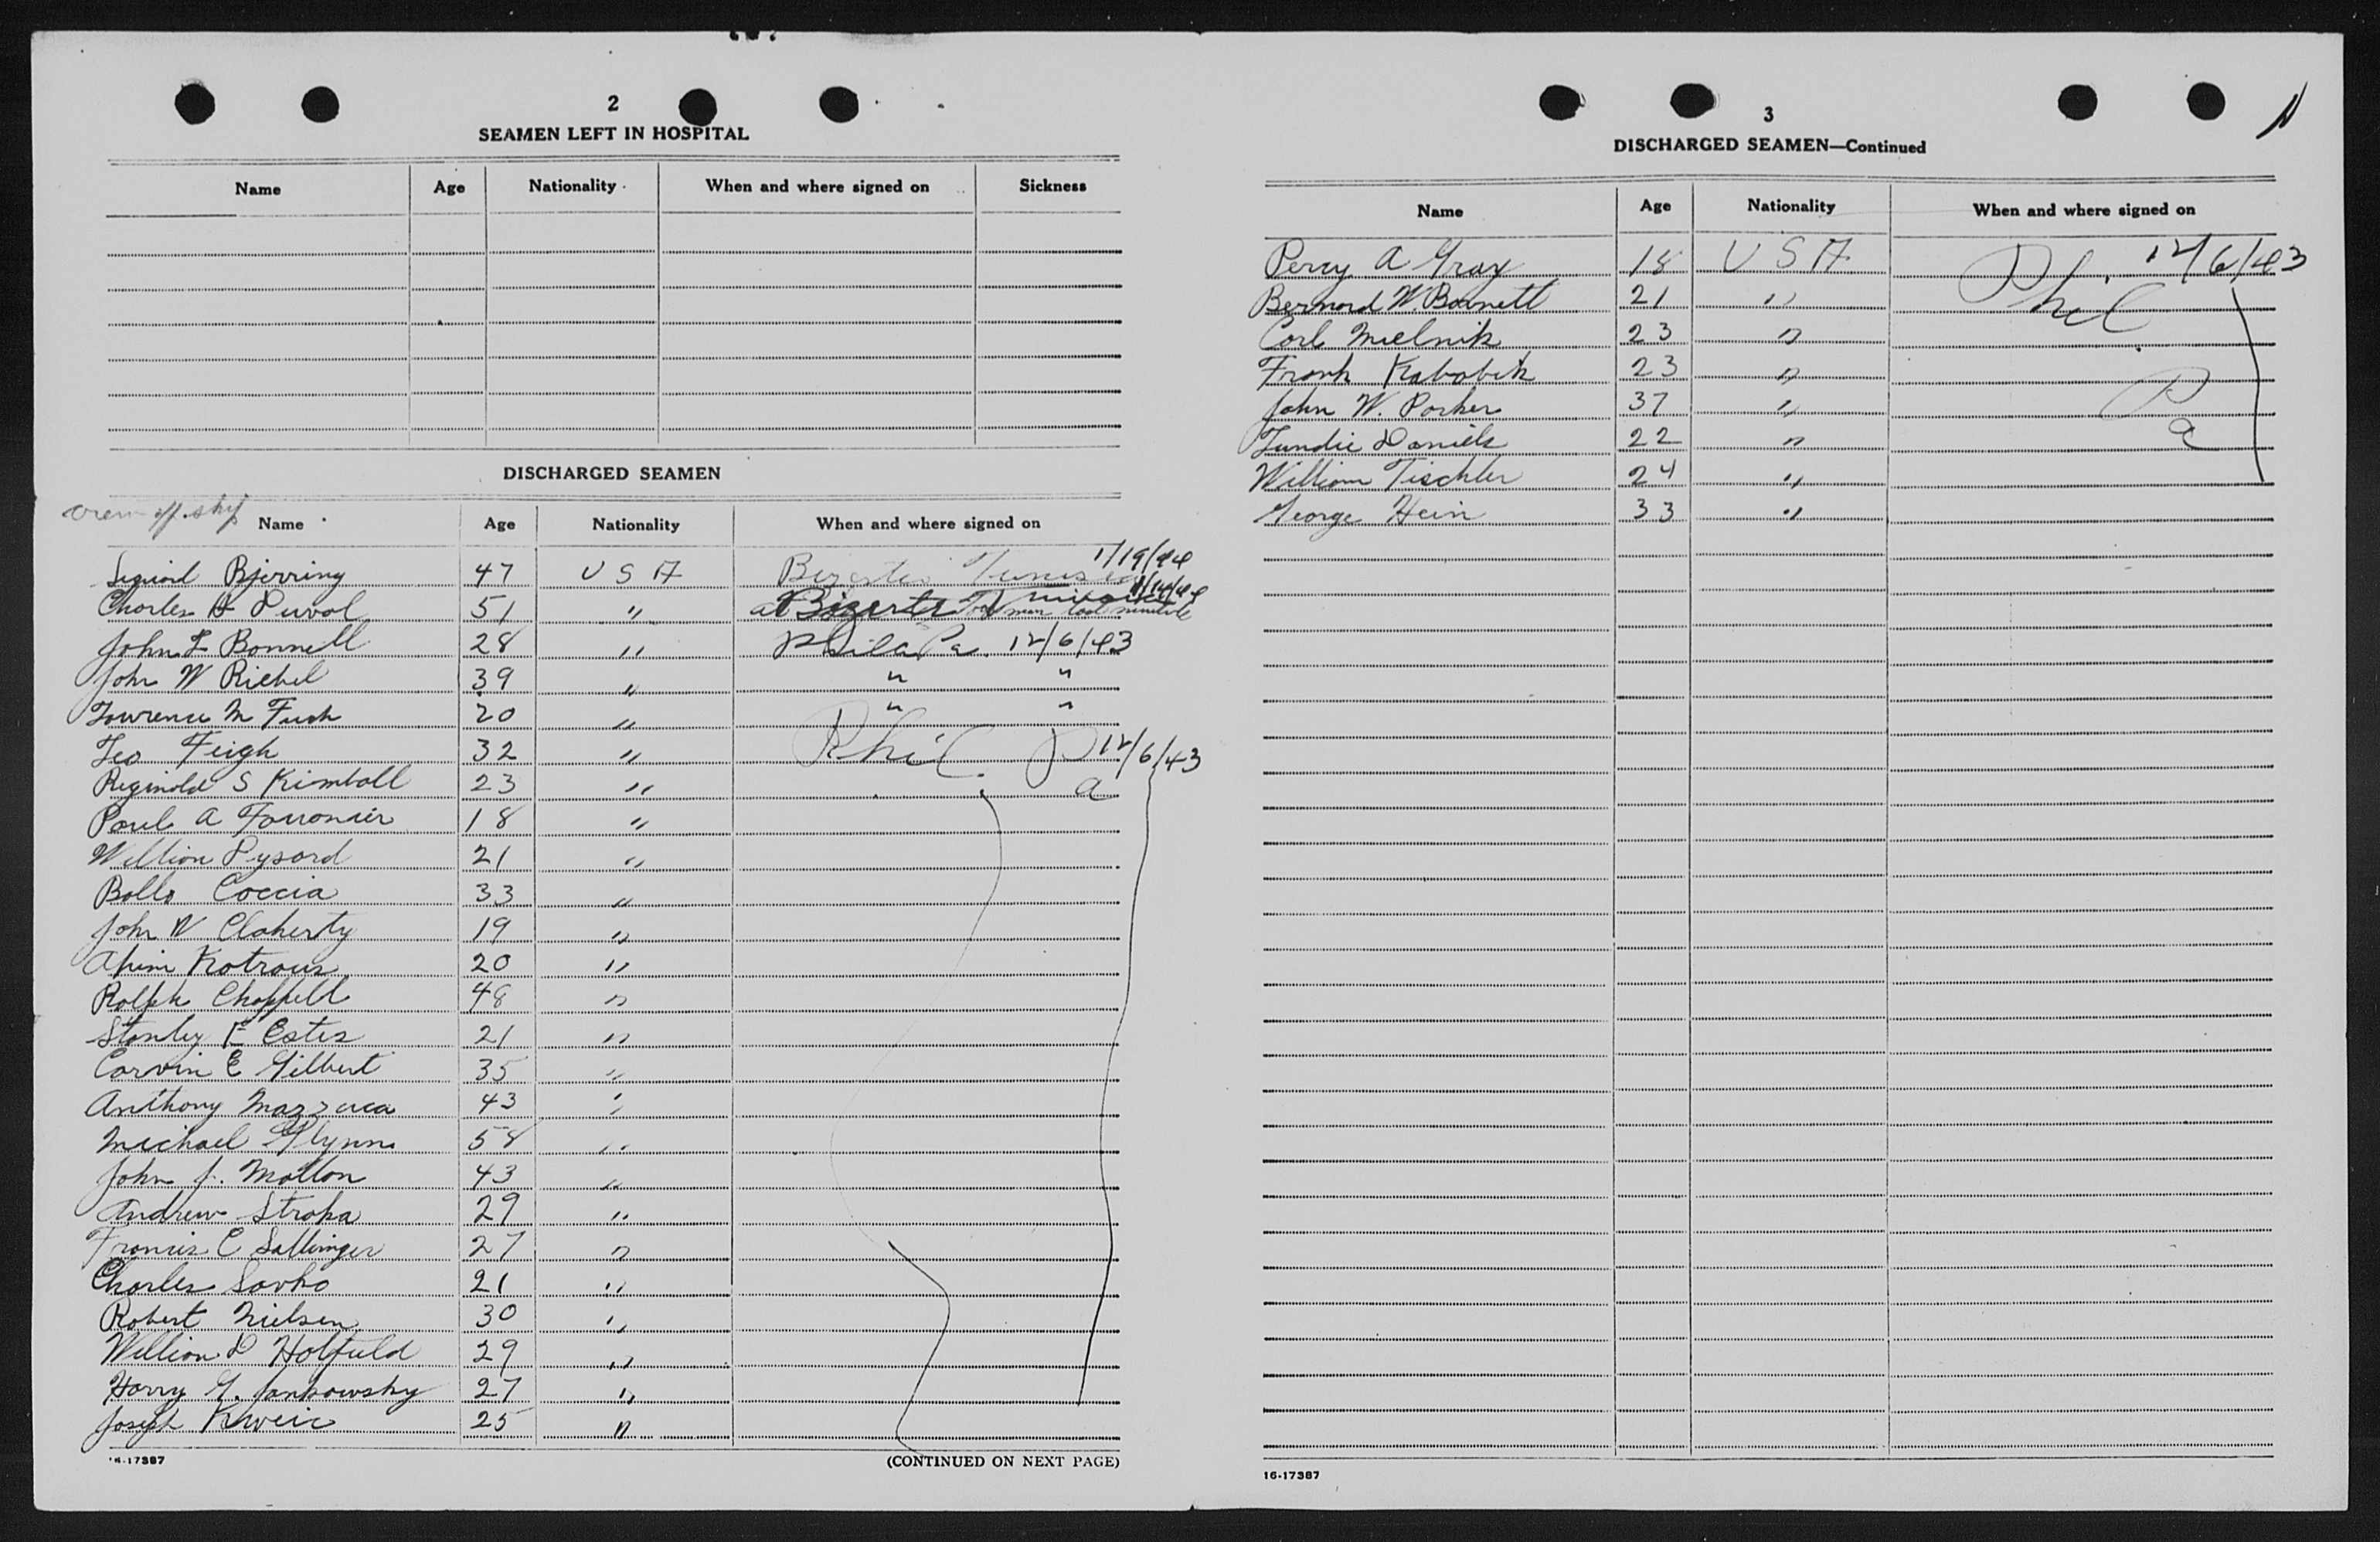 2
SEAMEN LEFT IN HOSPITAL
Name Age Nationality When and where signed on Sickness
DISCHARGED SEAMEN
Name Age Nationality When and where signed on
Bjerring 47 U S A Tunisia 1/19/44
Charles H Duval 51 " at Bizerte
John L Bonnell 28 " Phila Pa. 12/6/43
John W Richel 39 " " "
Lawrence M Fush 20 " " "
Leo Feigh 32 " Phil. Pa 12/6/43
Reginald S Kimball 23 "
Paul A 18 "
William Dysard 21 "
Coccia 33 "
John W Claherty 19 "
Kotrous 20 "
Ralph Chappell 48 "
Stanley F Estes 21 "
Carvin E Gilbert 35 "
Anthony Mazzuca 43 "
Michael Glynn 58 "
John J. Mallon 43 "
Andrew Stroka 29 "
Francis C Sallinger 27 "
Charles Savko 21 "
Robert Nielsen 30 "
William D Holfield 29 "
Harry G. Jankowsky 27 "
Joseph Kweic 25 "
16-17387
(CONTINUED ON NEXT PAGE)
3
DISCHARGED SEAMEN—Continued
Name Age Nationality When and where signed on
Percy A Gray 18 U S A Phil. Pa 12/6/43
Bernard W. Barnett 21 "
Carl Mielnik 23 "
Frank Kabobik 23 "
John W. Parker 37 "
Daniels 22 "
William Tischler 24 "
George Hein 33 "
16-17387